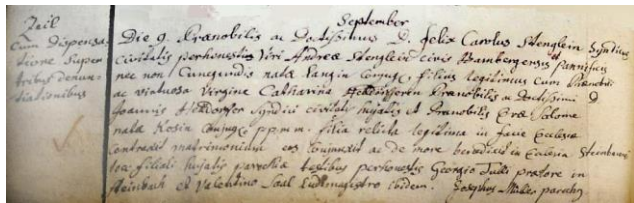 September
Zeil
Cum dispensa
tione super
tribus denun
tiationibus
Die 9. Prænobilis ac Doctissimus D. Felix Carolus Stenglein Syndicus
civitatis perhonesti Viri Andreæ Stenglein civis Bambergensis et Pannificis
nec non Cunegundis nata Langin conjux filius legitimus cum Prænobili
ac virtuosa Virgine Catharina Prænobilis ac Doctissimi D
Joannis Syndici civitatis hujatis et Prænobilis Evæ Salome
nata Rosin Conjux p.p.m.m. filia relicta legitima in facie Ecclesiæ
Contraxit matrimonium eos conjunxit ac de more benedixit in Ecclesia Steinbacensi
filiali hujatis parochiæ testibus perhonestis Georgio prætore in
Steinbach et Valentino Saal Ludimagistro ibidem. Josephus parochus